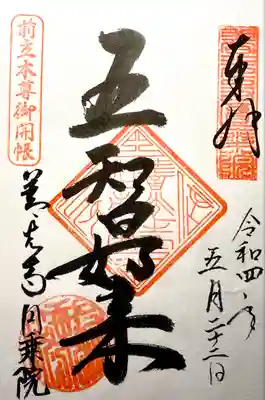 奉拝
令和四年
五月二十二日
五智如来
前立本尊御開帳
善光寺
円乗院